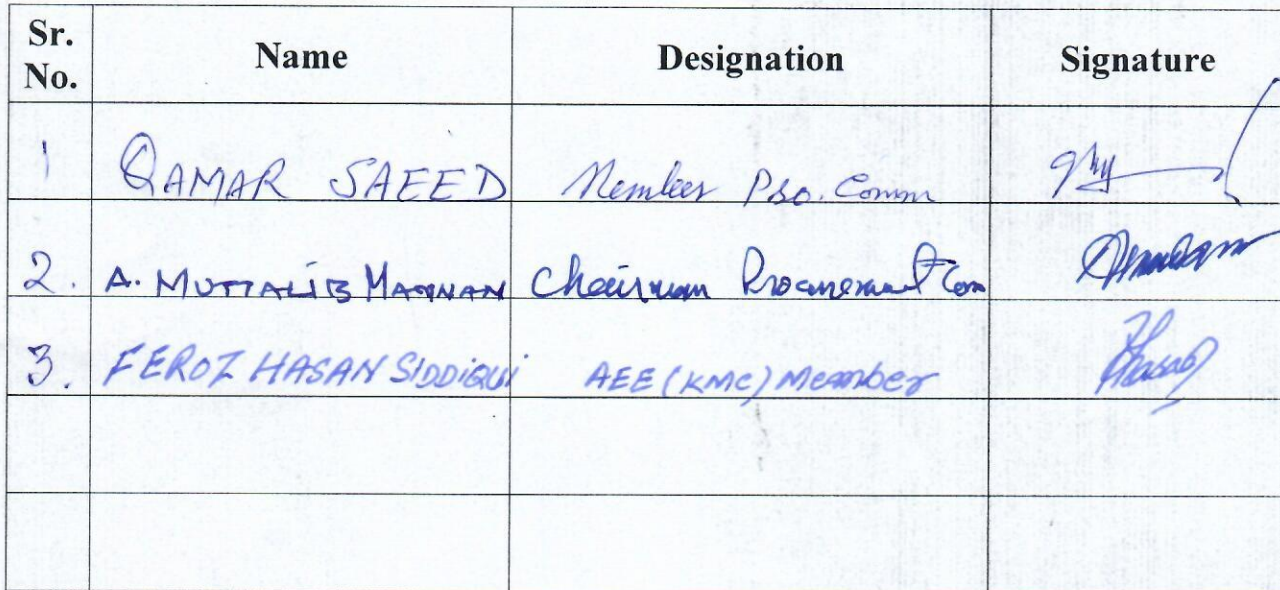 Sr. No. Name Designation Signature
1 QAMAR SAEED Member Pro. Comm
2. A. MUTTALIB MANNAN Chairman Procurement Com
3. FEROZ HASAN SIDDIQUI AEE (KMC) Member